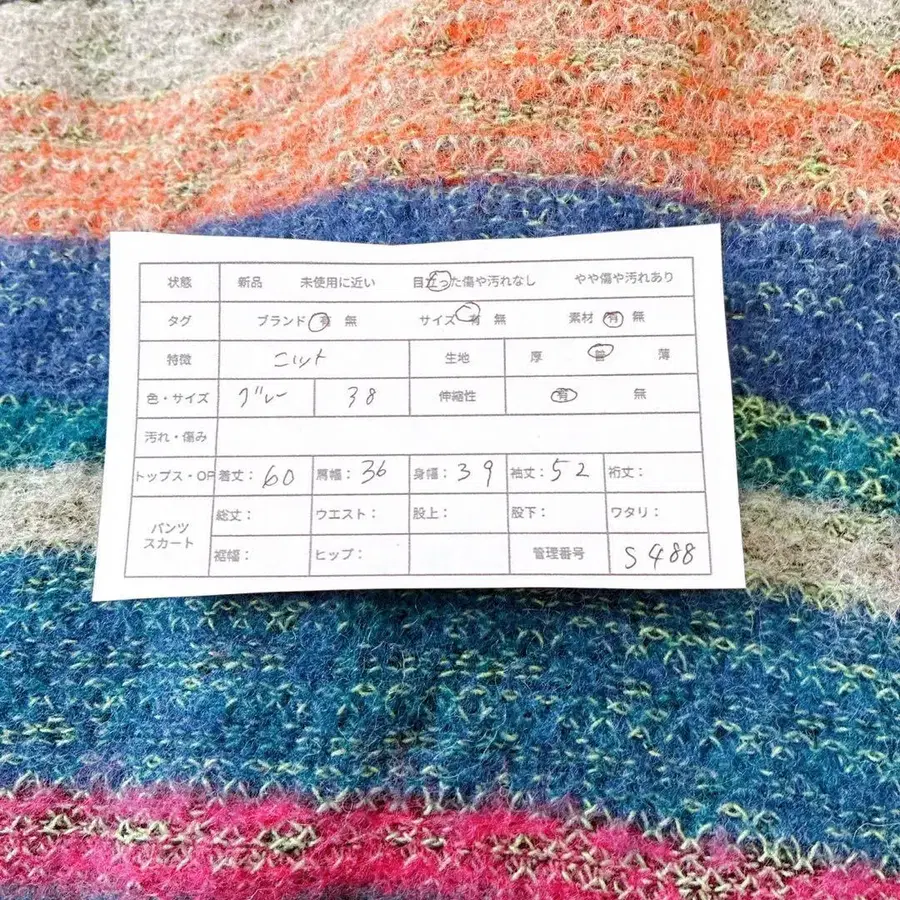 状態 新品 未使用に近い 目立った傷や汚れなし やや傷や汚れあり
タグ ブランド 有 無 サイズ 有 無 素材 有 無
特徴 ニット 生地 厚 普 薄
色・サイズ グレー 38 伸縮性 有 無
汚れ・傷み
トップス・OP 着丈: 60 肩幅: 36 身幅: 39 袖丈: 52 裄丈:
パンツ スカート 総丈: ウエスト: 股上: 股下: ワタリ:
裾幅: ヒップ: 管理番号 S488